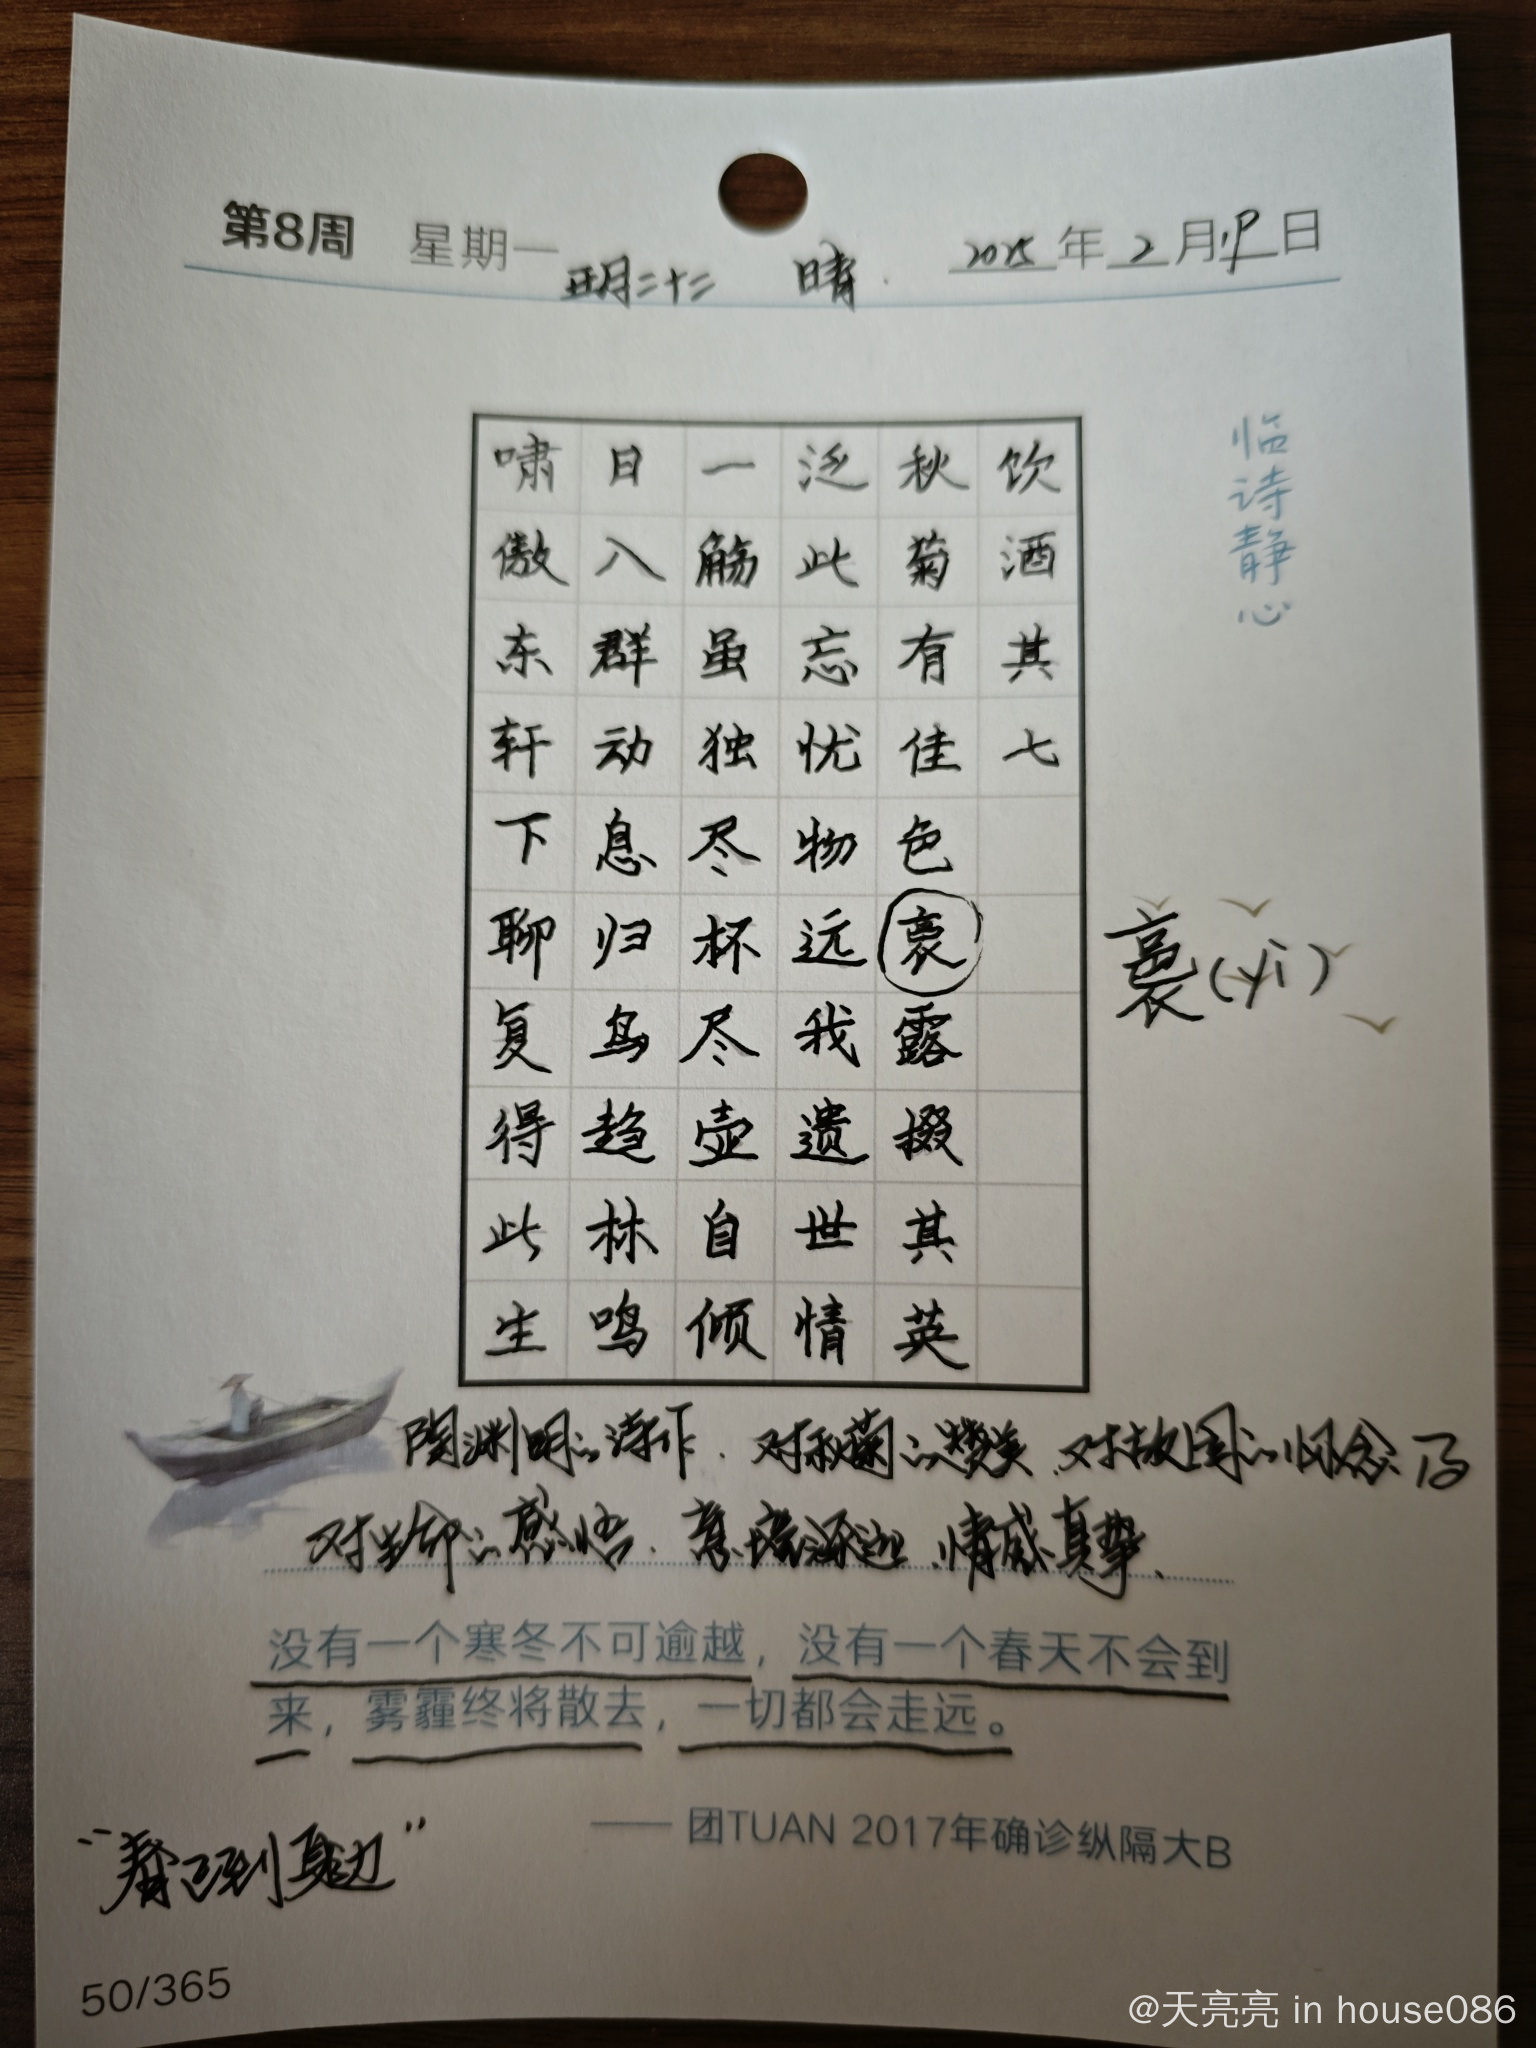 第8周 星期一 正月二十二 晴. 2025年2月19日
临诗静心
饮酒其七
秋菊有佳色裛露掇其英
泛此忘忧物远我遗世情
一觞虽独尽杯尽壶自倾
日入群动息归鸟趋林鸣
啸傲东轩下聊复得此生
裛(yì)
陶渊明的诗作.对秋菊的赞美.对故国的怀念.及
对生命的感悟.意境深远.情感真挚.
没有一个寒冬不可逾越，没有一个春天不会到
来，雾霾终将散去，一切都会走远。
—— 团TUAN 2017年确诊纵隔大B
“春已到身边”
50/365
@天亮亮 in house086